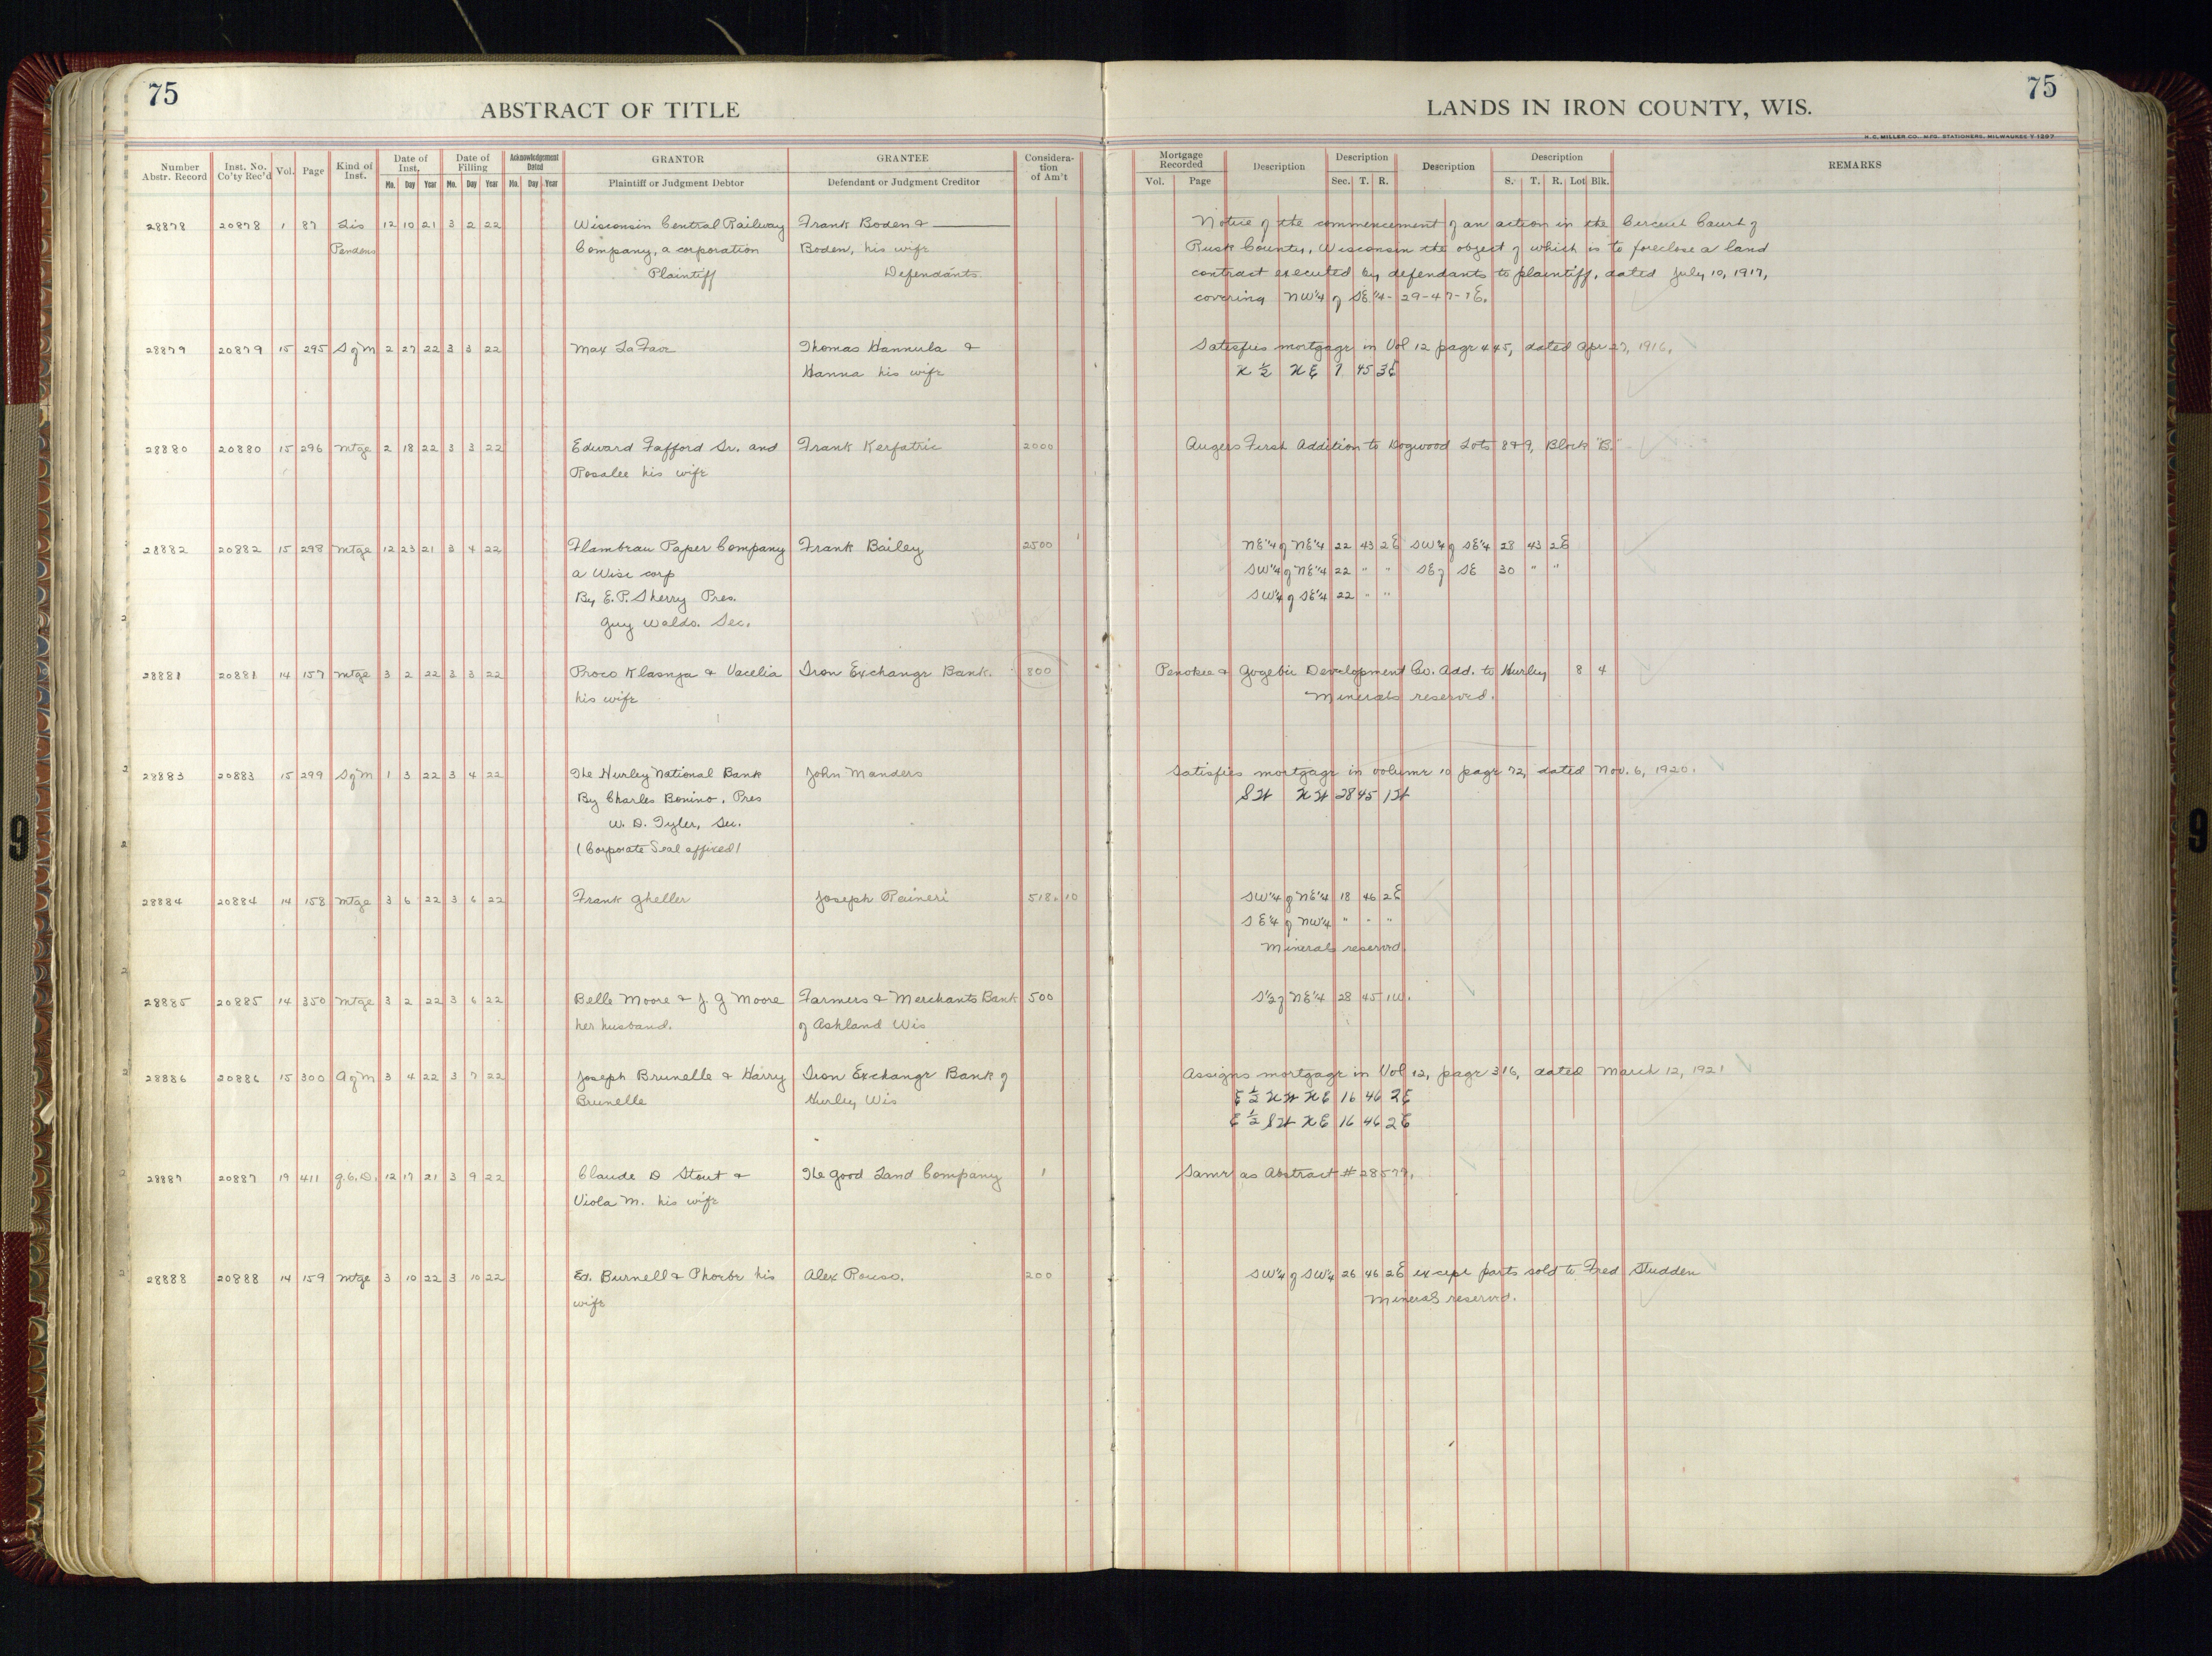 75
75
ABSTRACT OF TITLE
LANDS IN IRON COUNTY, WIS.
H. C. MILLER CO., MFG. STATIONERS, MILWAUKEE
Number Abstr. Record
Inst. No. Co'ty Rec'd
Vol.
Page
Kind of Inst.
Date of Inst. Mo. Day Year
Date of Filling Mo. Day Year
Acknowledgement Dated Mo. Day Year
GRANTOR Plaintiff or Judgment Debtor
GRANTEE Defendant or Judgment Creditor
Considera- tion of Am't
Mortgage Recorded Vol. Page
Description
Description Sec. T. R.
Description
Description S. T. R. Lot Blk.
REMARKS
28878 20878 1 87 Lis 12 10 21 3 2 22 Wisconsin Central Railway Frank Boden & Notice of the commencement of an action in the Circuit Court of
Pendens Company, a corporation Boden, his wife Rusk County, Wisconsin the object of which is to foreclose a land
Plaintiff Defendants. contract executed by defendants to plaintiff, dated July 10, 1917,
covering NW¼ of SE¼- 29-47-1E.
28879 20879 15 295 S of M 2 27 22 3 3 22 Max La Favr Thomas Hannula & Satisfies mortgage in Vol 12 page 445, dated Apr 27, 1916.
Hanna his wife N ½ NE 7 45 3E
28880 20880 15 296 Mtge 2 18 22 3 3 22 Edward Fafford Sr. and Frank Kerfatric 2000 Augers First Addition to Dogwood Lots 8&9, Block "B."
Rosalee his wife
28882 20882 15 298 Mtge 12 23 21 3 4 22 Flambeau Paper Company Frank Bailey 2500 NE¼ of NE¼ 22 43 2E SW¼ of SE¼ 28 43 2E
a Wisc corp SW¼ of NE¼ 22 " " SE of SE 30 " "
By E.P. Sherry Pres. SW¼ of SE¼ 22 " "
Guy Waldo. Sec.
28881 20881 14 157 Mtge 3 2 22 3 3 22 Proco Klasnja & Vacelia Iron Exchange Bank. 800 Penokee & Gogebic Development Co. Add. to Hurley 8 4
his wife Minerals reserved.
28883 20883 15 299 S of M 1 3 22 3 4 22 The Hurley National Bank John Manders Satisfies mortgage in volume 10 page 72, dated Nov. 6, 1920.
By Charles Bonino. Pres SW NW 28 45 1W
W. D. Tyler, Sec.
(Corporate Seal affixed)
28884 20884 14 158 Mtge 3 6 22 3 6 22 Frank Gheller Joseph Raineri 518. 10 SW¼ of NE¼ 18 46 2E
SE¼ of NW¼ " " "
Minerals reserved
28885 20885 14 350 Mtge 3 2 22 3 6 22 Belle Moore & J. G Moore Farmers & Merchants Bank 500 S½ of NE¼ 28 45 1W.
her husband. of Ashland Wis
28886 20886 15 300 A of M 3 4 22 3 7 22 Joseph Brunelle & Harry Iron Exchange Bank of Assigns mortgage in Vol 12, page 316, dated March 12, 1921
Brunelle Hurley Wis E ½ NW NE 16 46 2E
E ½ SW NE 16 46 2E
28887 20887 19 411 Q.C.D. 12 17 21 3 9 22 Claude D Stout & The Good Land Company 1 Same as Abstract # 28579.
Viola M. his wife
28888 20888 14 159 Mtge 3 10 22 3 10 22 Ed. Burnell & Phoebe his Alex Rouso. 200 SW¼ of SW¼ 26 46 2E except parts sold to Fred Studden
wife Mineral reserved.
9
9